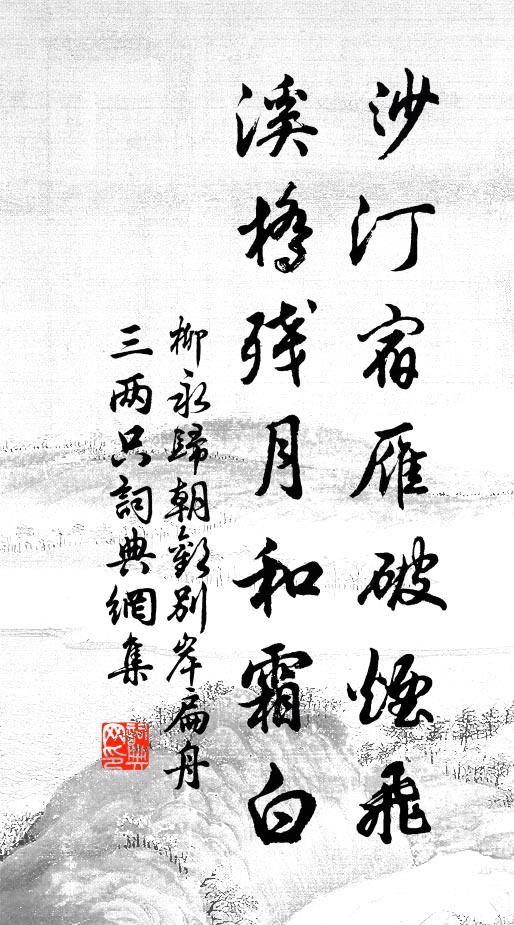 沙汀宿雁破煙飛
溪橋残月和霜白
柳永歸朝歡別岸扁舟
三两只詞典網集